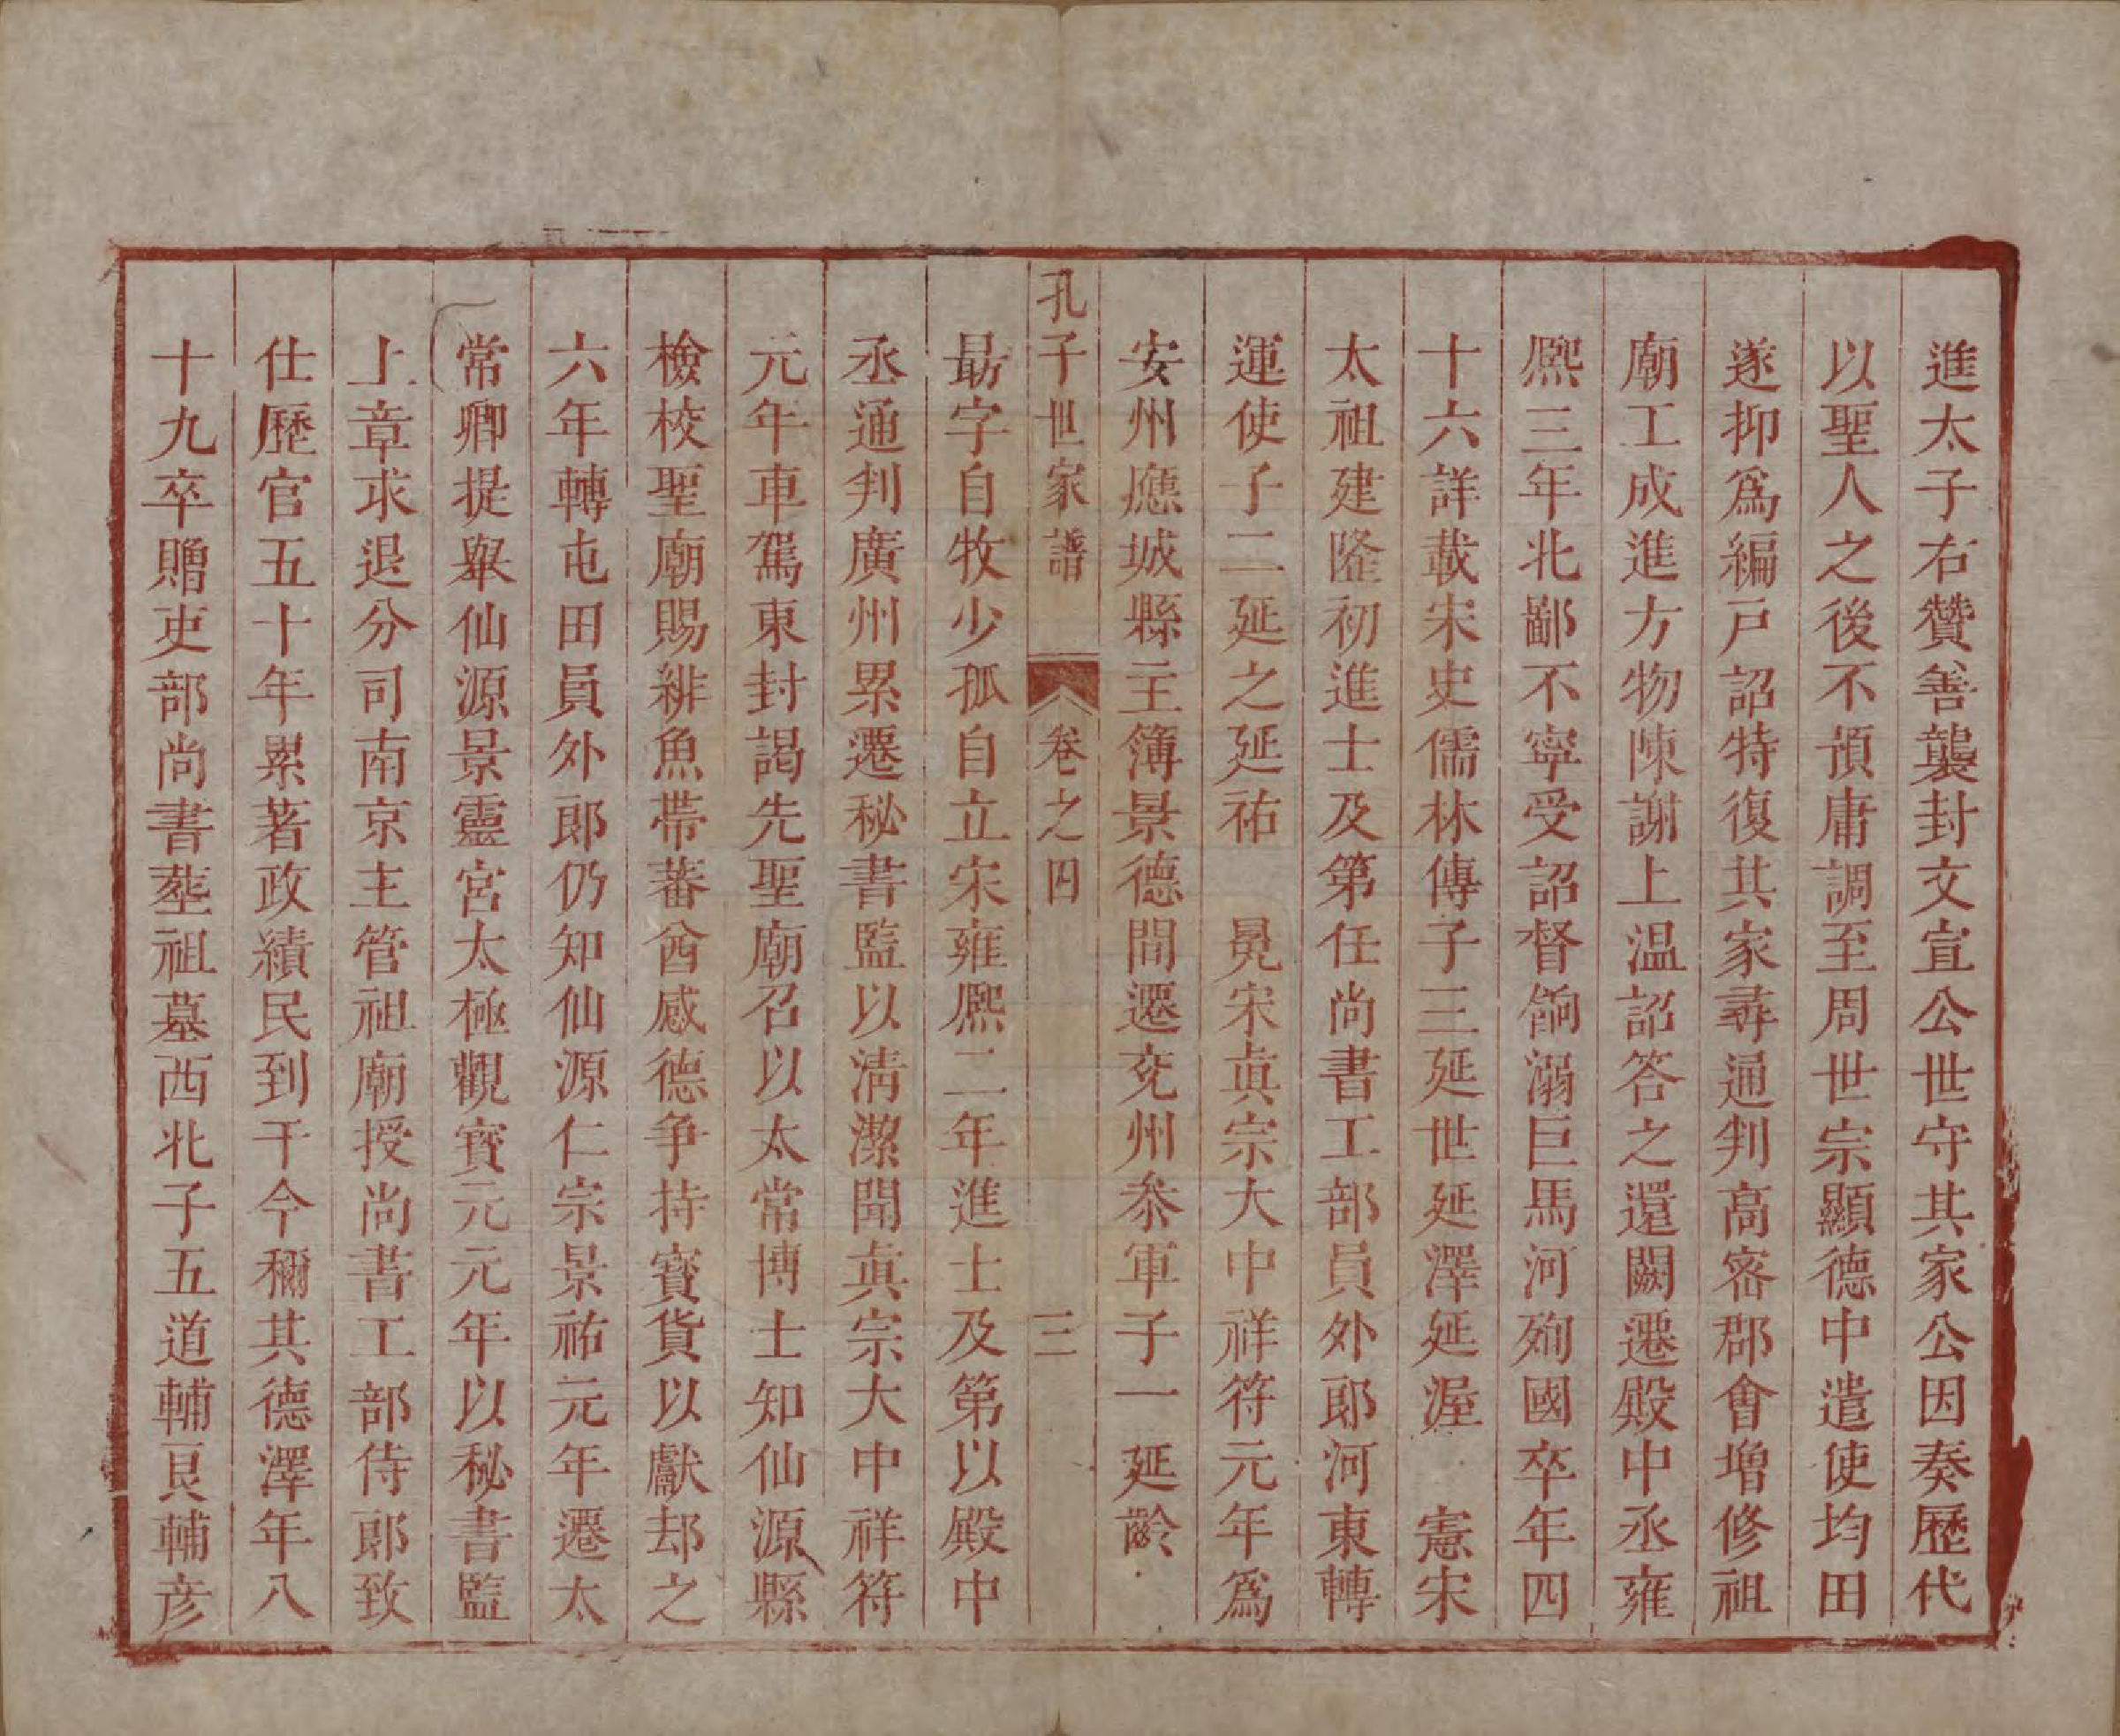 進太子右贊善襲封文宣公世守其家公因奏歷代
以聖人之後不預庸調至周世宗顯德中遣使均田
遂抑爲編戶詔特復其家尋通判高宻郡會增修祖
廟工成進方物陳謝上温詔答之還闕遷殿中丞雍
熈三年北鄙不寧受詔督餉溺巨馬河殉國卒年四
十六詳載宋史儒林傳子三延世延澤延渥　憲宋
太祖建隆初進士及第任尚書工部員外郎河東轉
運使子二延之延祐　晃宋眞宗大中祥符元年爲
安州應城縣主簿景德間遷兖州叅軍子一延齡
孔子世家譜　卷之四　三
最字自牧少孤自立宋雍熈二年進士及第以殿中
丞通判廣州累遷秘書監以淸潔聞眞宗大中祥符
元年車駕東封謁先聖廟召以太常博士知仙源縣
檢校聖廟賜緋魚帶蕃酋感德争持寳貨以獻却之
六年轉屯田員外郎仍知仙源仁宗景祐元年遷太
常卿提舉仙源景靈宮太極觀寳元元年以秘書監
上章求退分司南京主管祖廟授尚書工部侍郎致
仕歷官五十年累著政績民到于今稱其德澤年八
十九卒贈吏部尚書塟祖墓西北子五道輔良輔彦